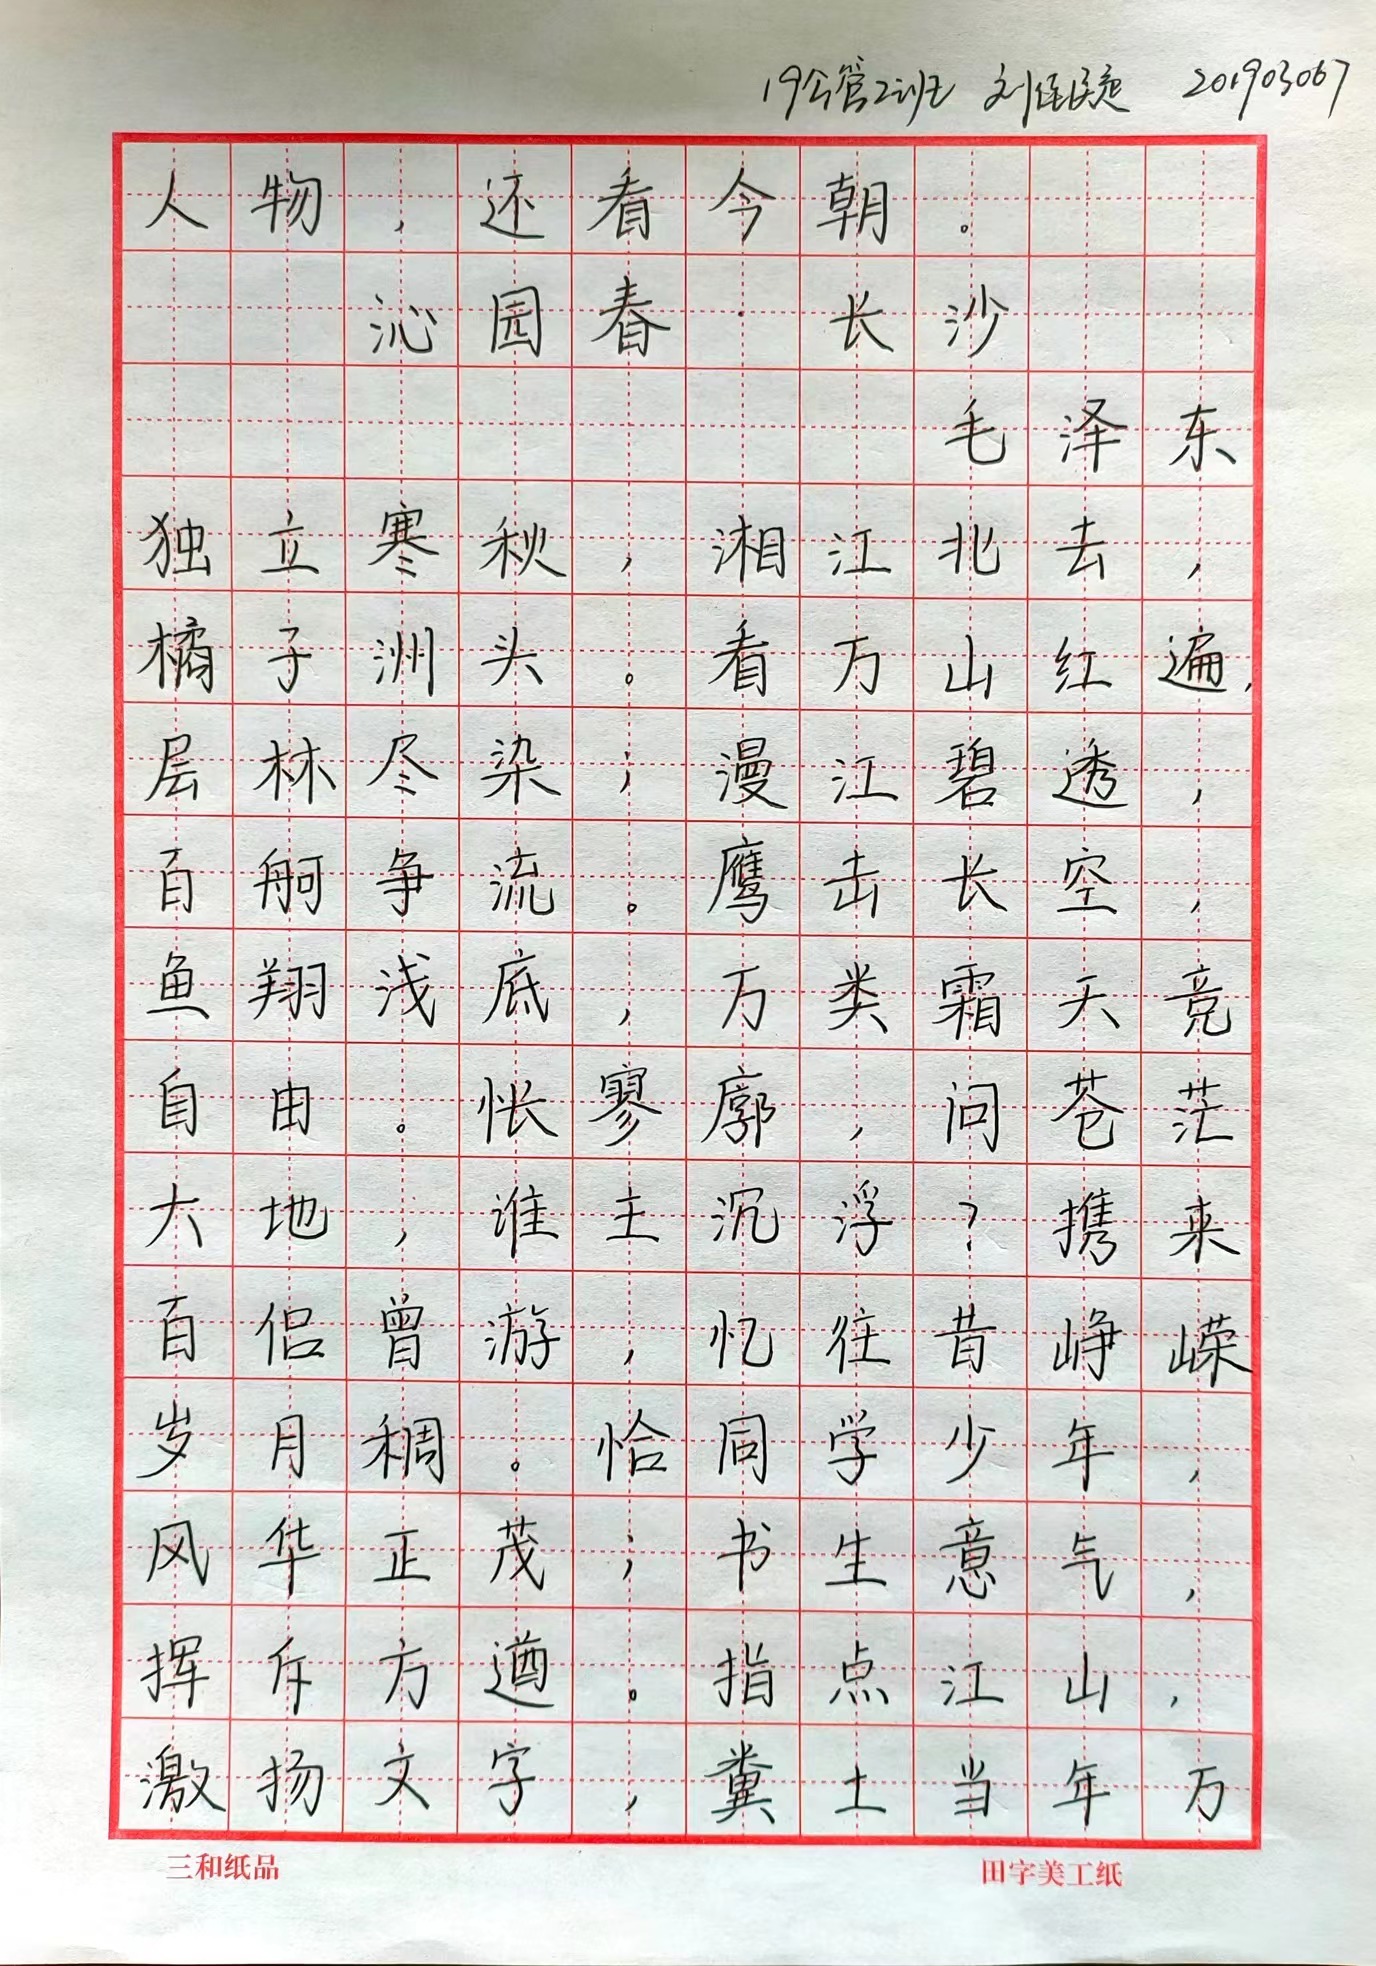 19公管2班 刘 201903067
人物，还看今朝。
沁园春·长沙
毛泽东
独立寒秋，湘江北去，
橘子洲头。看万山红遍，
层林尽染；漫江碧透，
百舸争流。鹰击长空，
鱼翔浅底，万类霜天竞
自由。怅寥廓，问苍茫
大地，谁主沉浮？携来
百侣曾游，忆往昔峥嵘
岁月稠。恰同学少年，
风华正茂；书生意气，
挥斥方遒。指点江山，
激扬文字，粪土当年万
三和纸品 田字美工纸